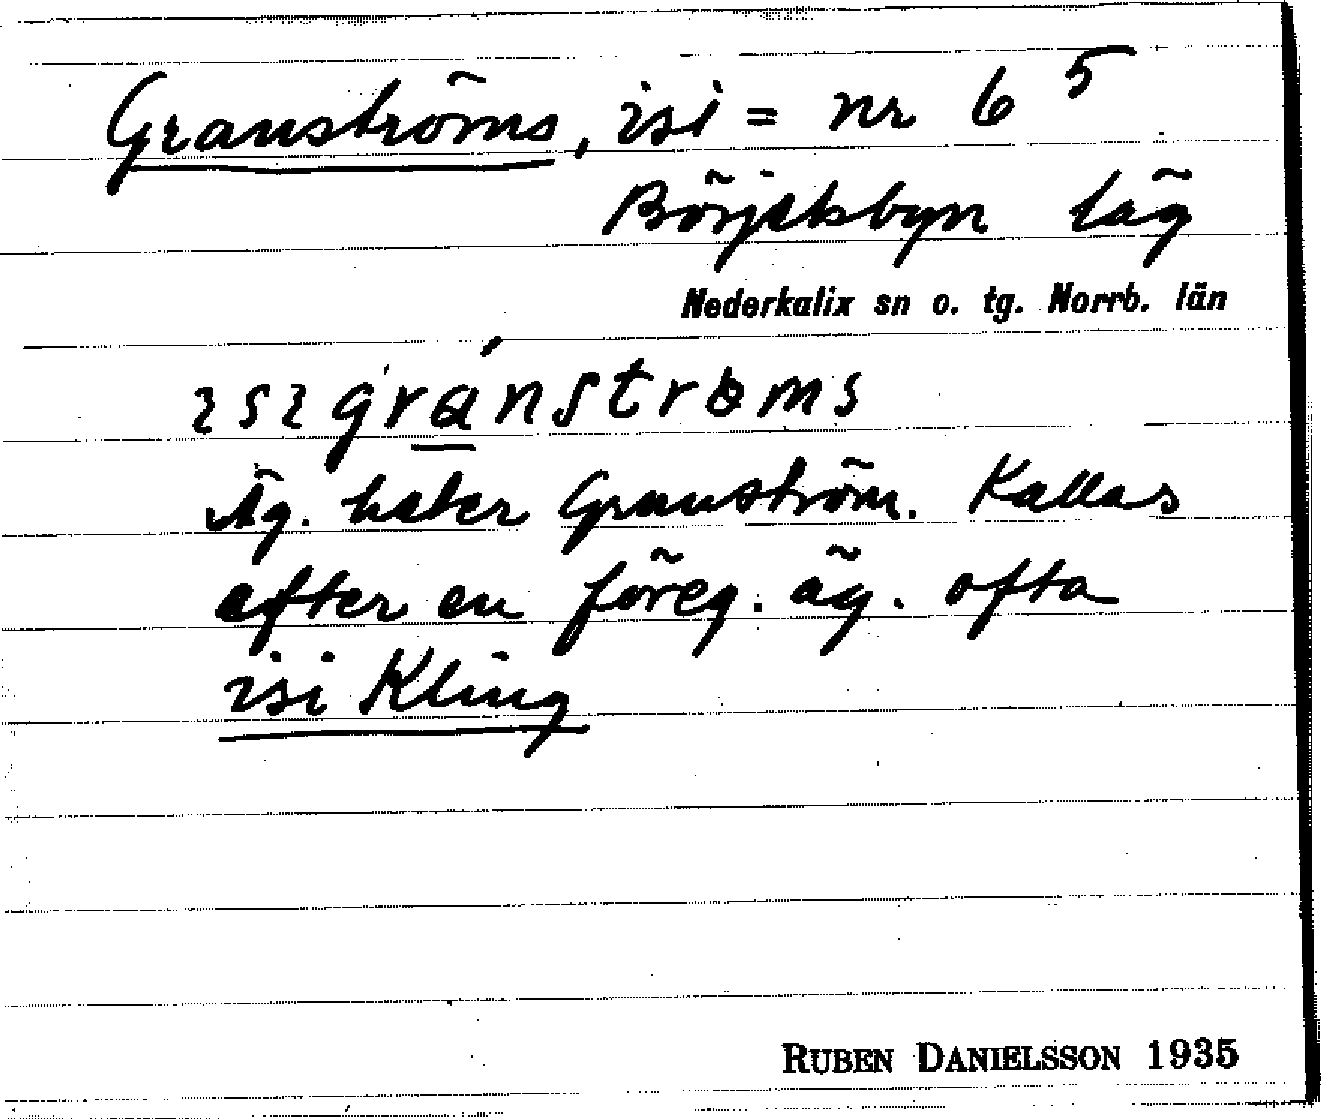 Granströms, isi = nr 6⁵
Börjelsbyn läg
Nederkalix sn o. tg. Norrb. län
ɩsɩ gránstrɵms
Äg. heter Granström. Kallas
efter en föreg. äg. ofta
isi Kling
RUBEN DANIELSSON 1935